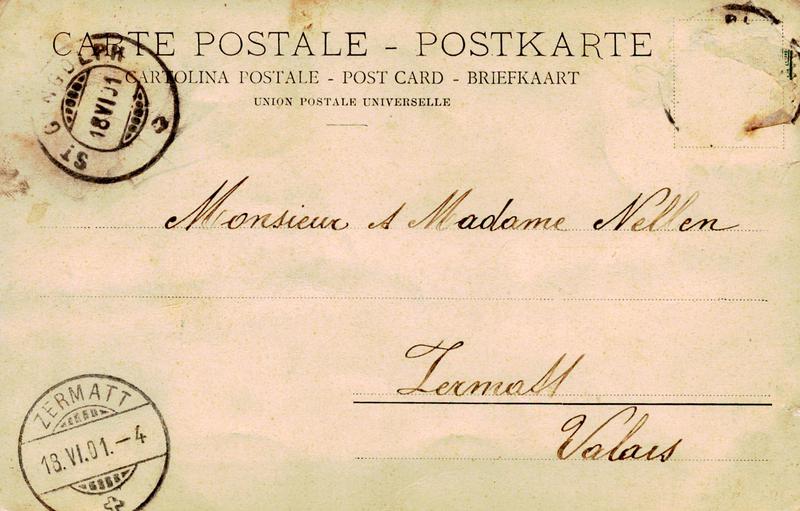 CARTE POSTALE - POSTKARTE
CARTOLINA POSTALE - POST CARD - BRIEFKAART
UNION POSTALE UNIVERSELLE
ST GINGOLPH
18 VI 01
Monsieur & Madame Nellen
Zermatt
Valais
ZERMATT
18.VI.01.-4